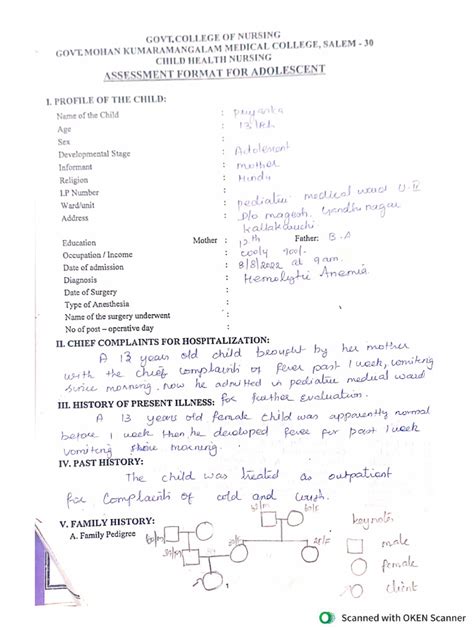 GOVT.COLLEGE OF NURSING
GOVT.MOHAN KUMARAMANGALAM MEDICAL COLLEGE, SALEM - 30
CHILD HEALTH NURSING
ASSESSMENT FORMAT FOR ADOLESCENT
I. PROFILE OF THE CHILD:
Name of the Child : Priyanka
Age :
Sex :
Developmental Stage : Adolescent
Informant : mother
Religion : Hindu
I.P Number :
Ward/unit : pediatric medical ward U-II
Address : D/o magesh, Gandhi nagar
Education Mother : 12th Father: B.A
Occupation / Income : cooly
Date of admission : 8/8/2022 at 9am.
Diagnosis : Hemolytic Anemia
Date of Surgery :
Type of Anesthesia :
Name of the surgery underwent :
No of post – operative day :
II. CHIEF COMPLAINTS FOR HOSPITALIZATION:
A 13 years old child brought by her mother
with the chief complaints of fever past 1 week, vomiting
since morning. now he admitted in pediatric medical ward
for further evaluation.
III. HISTORY OF PRESENT ILLNESS:
A 13 years old female child was apparently normal
before 1 week then he developed fever for past 1 week
vomiting since morning.
IV. PAST HISTORY:
The child was treated as outpatient
for complaints of cold and
V. FAMILY HISTORY:
A. Family Pedigree
keynote:
male
female
client
Scanned with OKEN Scanner